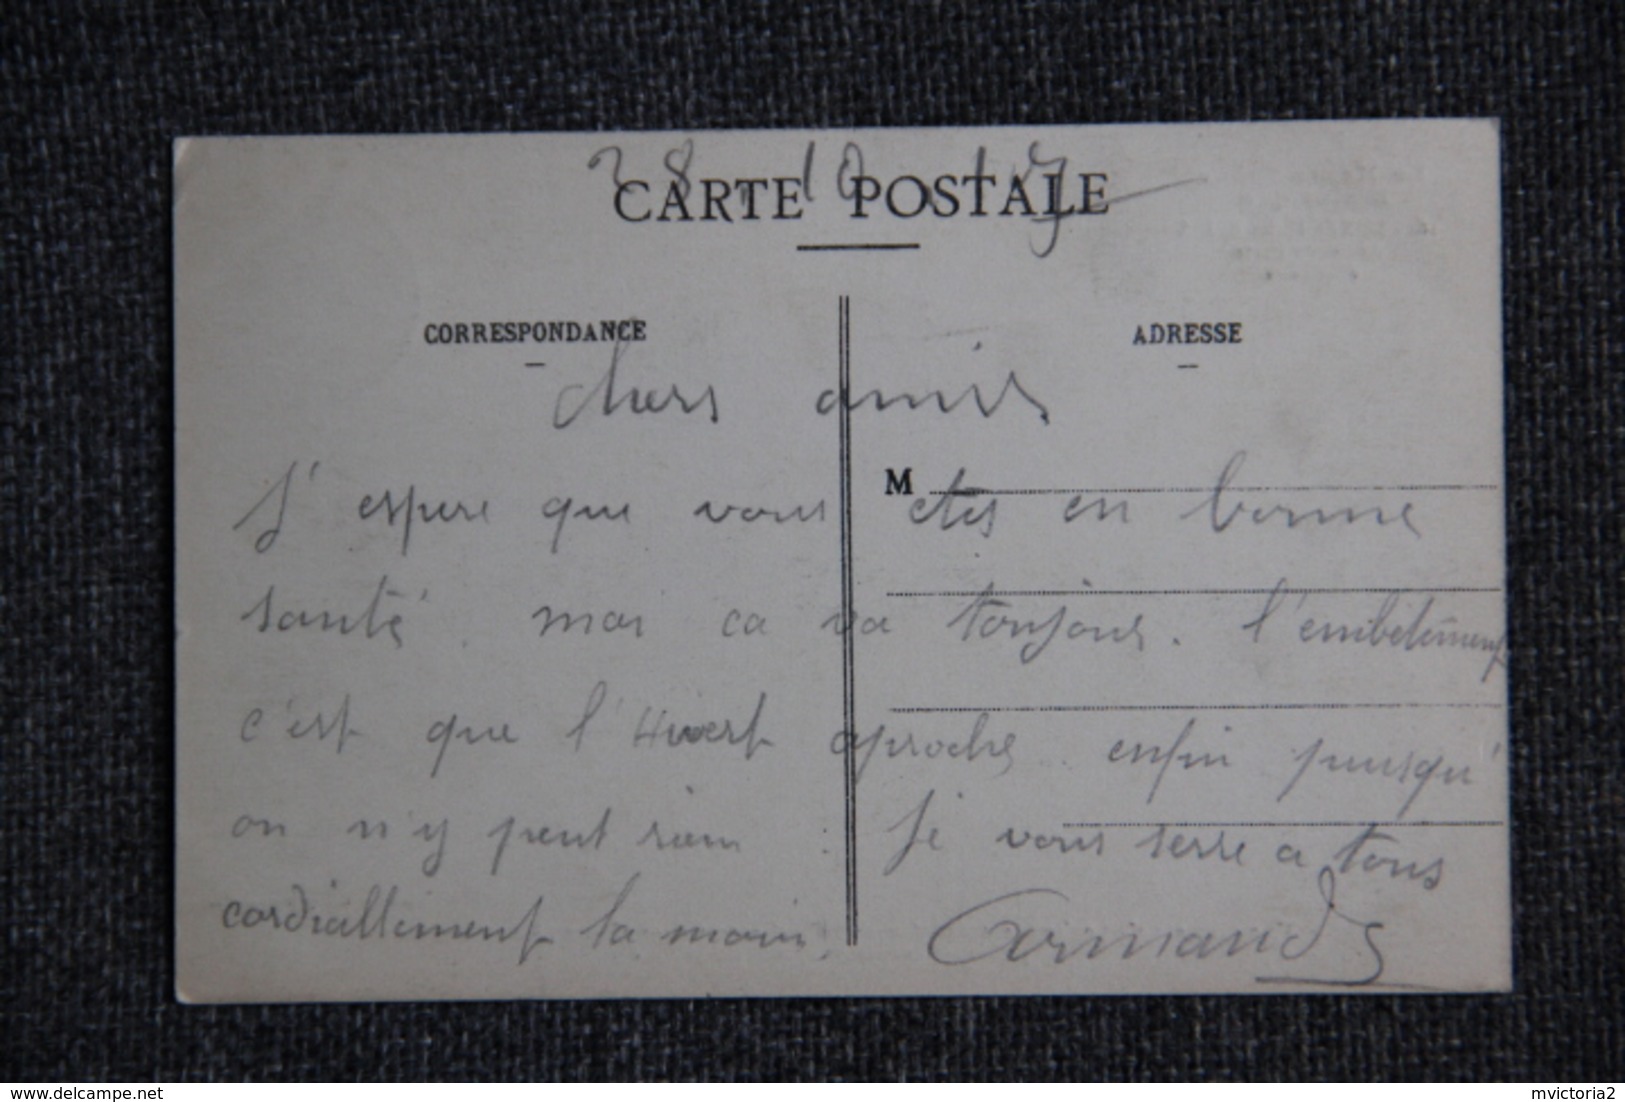 28.10.17
CARTE POSTALE
CORRESPONDANCE
ADRESSE
Chers amis
M
J'espere que vous etes en bonne
santé. moi ca va toujour. l'embetement
c'est que l'Hivert aproche. enfin puisqu'
on n'y peut rien : Je vous serre a tous
cordiallement la main.
Armand
delcampe.net
mvictoria2